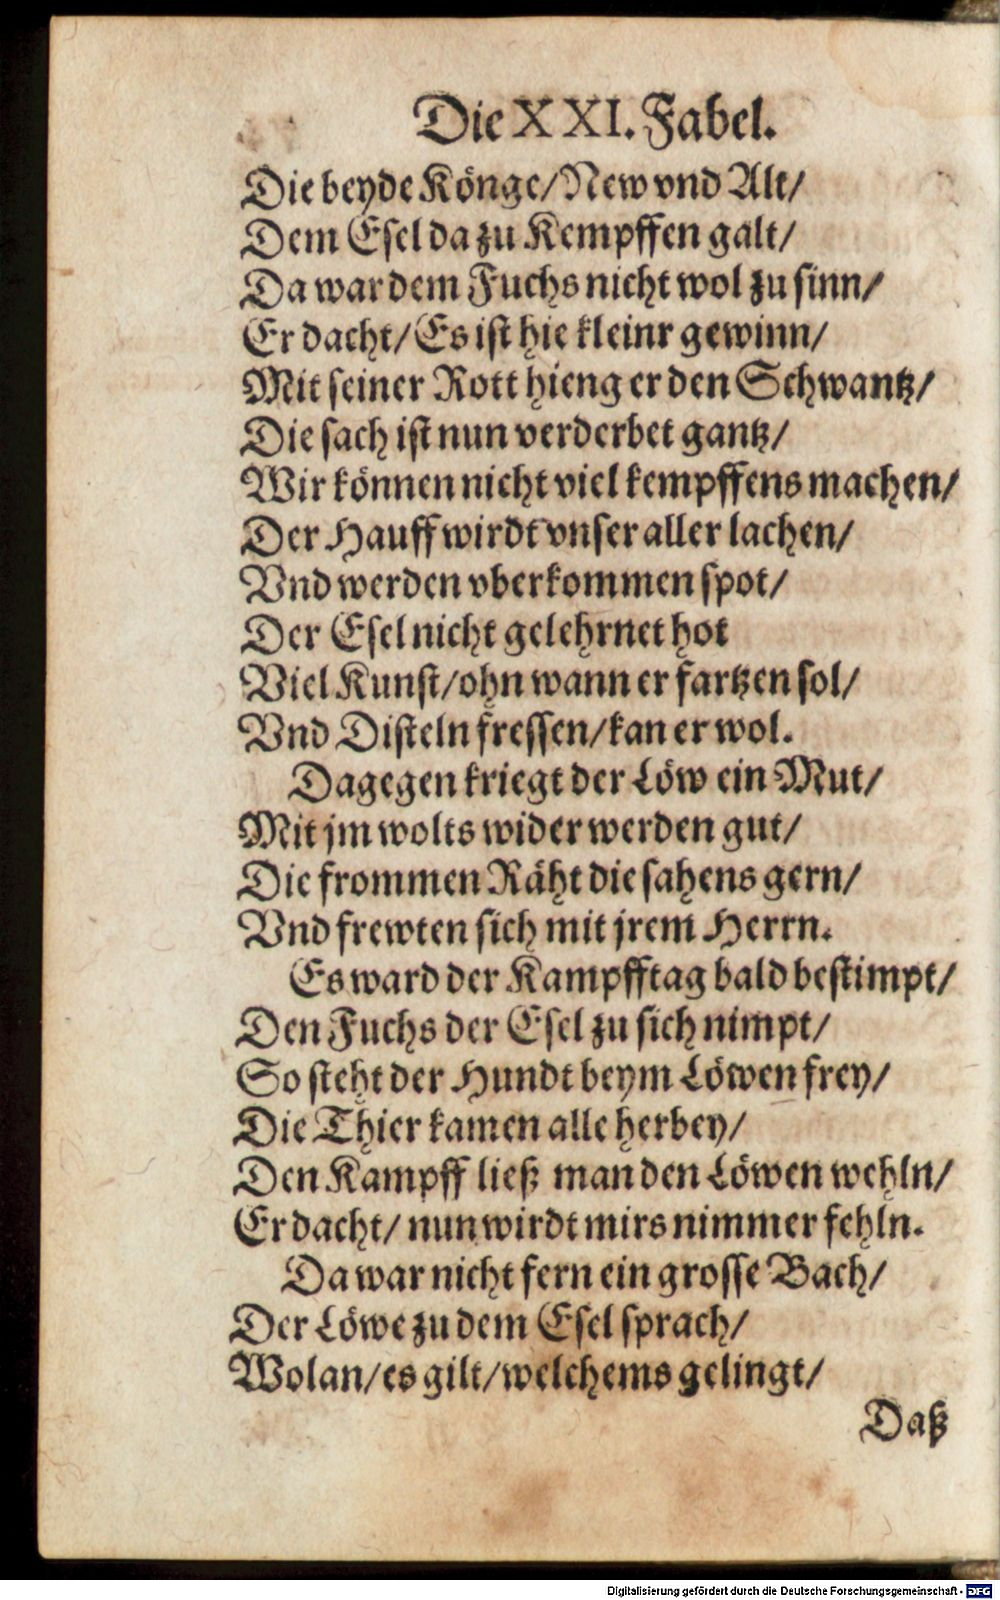 Die XXI. Fabel.
Die beyde Könge/ New vnd Alt/
Dem Esel da zu Kempffen galt/
Da war dem Fuchs nicht wol zu sinn/
Er dacht/ Es ist hie kleinr gewinn/
Mit seiner Rott hieng er den Schwantz/
Die sach ist nun verderbet gantz/
Wir können nicht viel kempffens machen/
Der Hauff wirdt vnser aller lachen/
Vnd werden vberkommen spot/
Der Esel nicht gelehrnet hot
Viel Kunst/ ohn wann er fartzen sol/
Vnd Disteln fressen/ kan er wol.
Dagegen kriegt der Löw ein Mut/
Mit jm wolts wider werden gut/
Die frommen Räht die sahens gern/
Vnd frewten sich mit jrem Herrn.
Es ward der Kampfftag bald bestimpt/
Den Fuchs der Esel zu sich nimpt/
So steht der Hundt beym Löwen frey/
Die Thier kamen alle herbey/
Den Kampff ließ man den Löwen wehln/
Er dacht/ nun wirdt mirs nimmer fehln.
Da war nicht fern ein grosse Bach/
Der Löwe zu dem Esel sprach/
Wolan/ es gilt/ welchems gelingt/
Daß
Digitalisierung gefördert durch die Deutsche Forschungsgemeinschaft - DFG